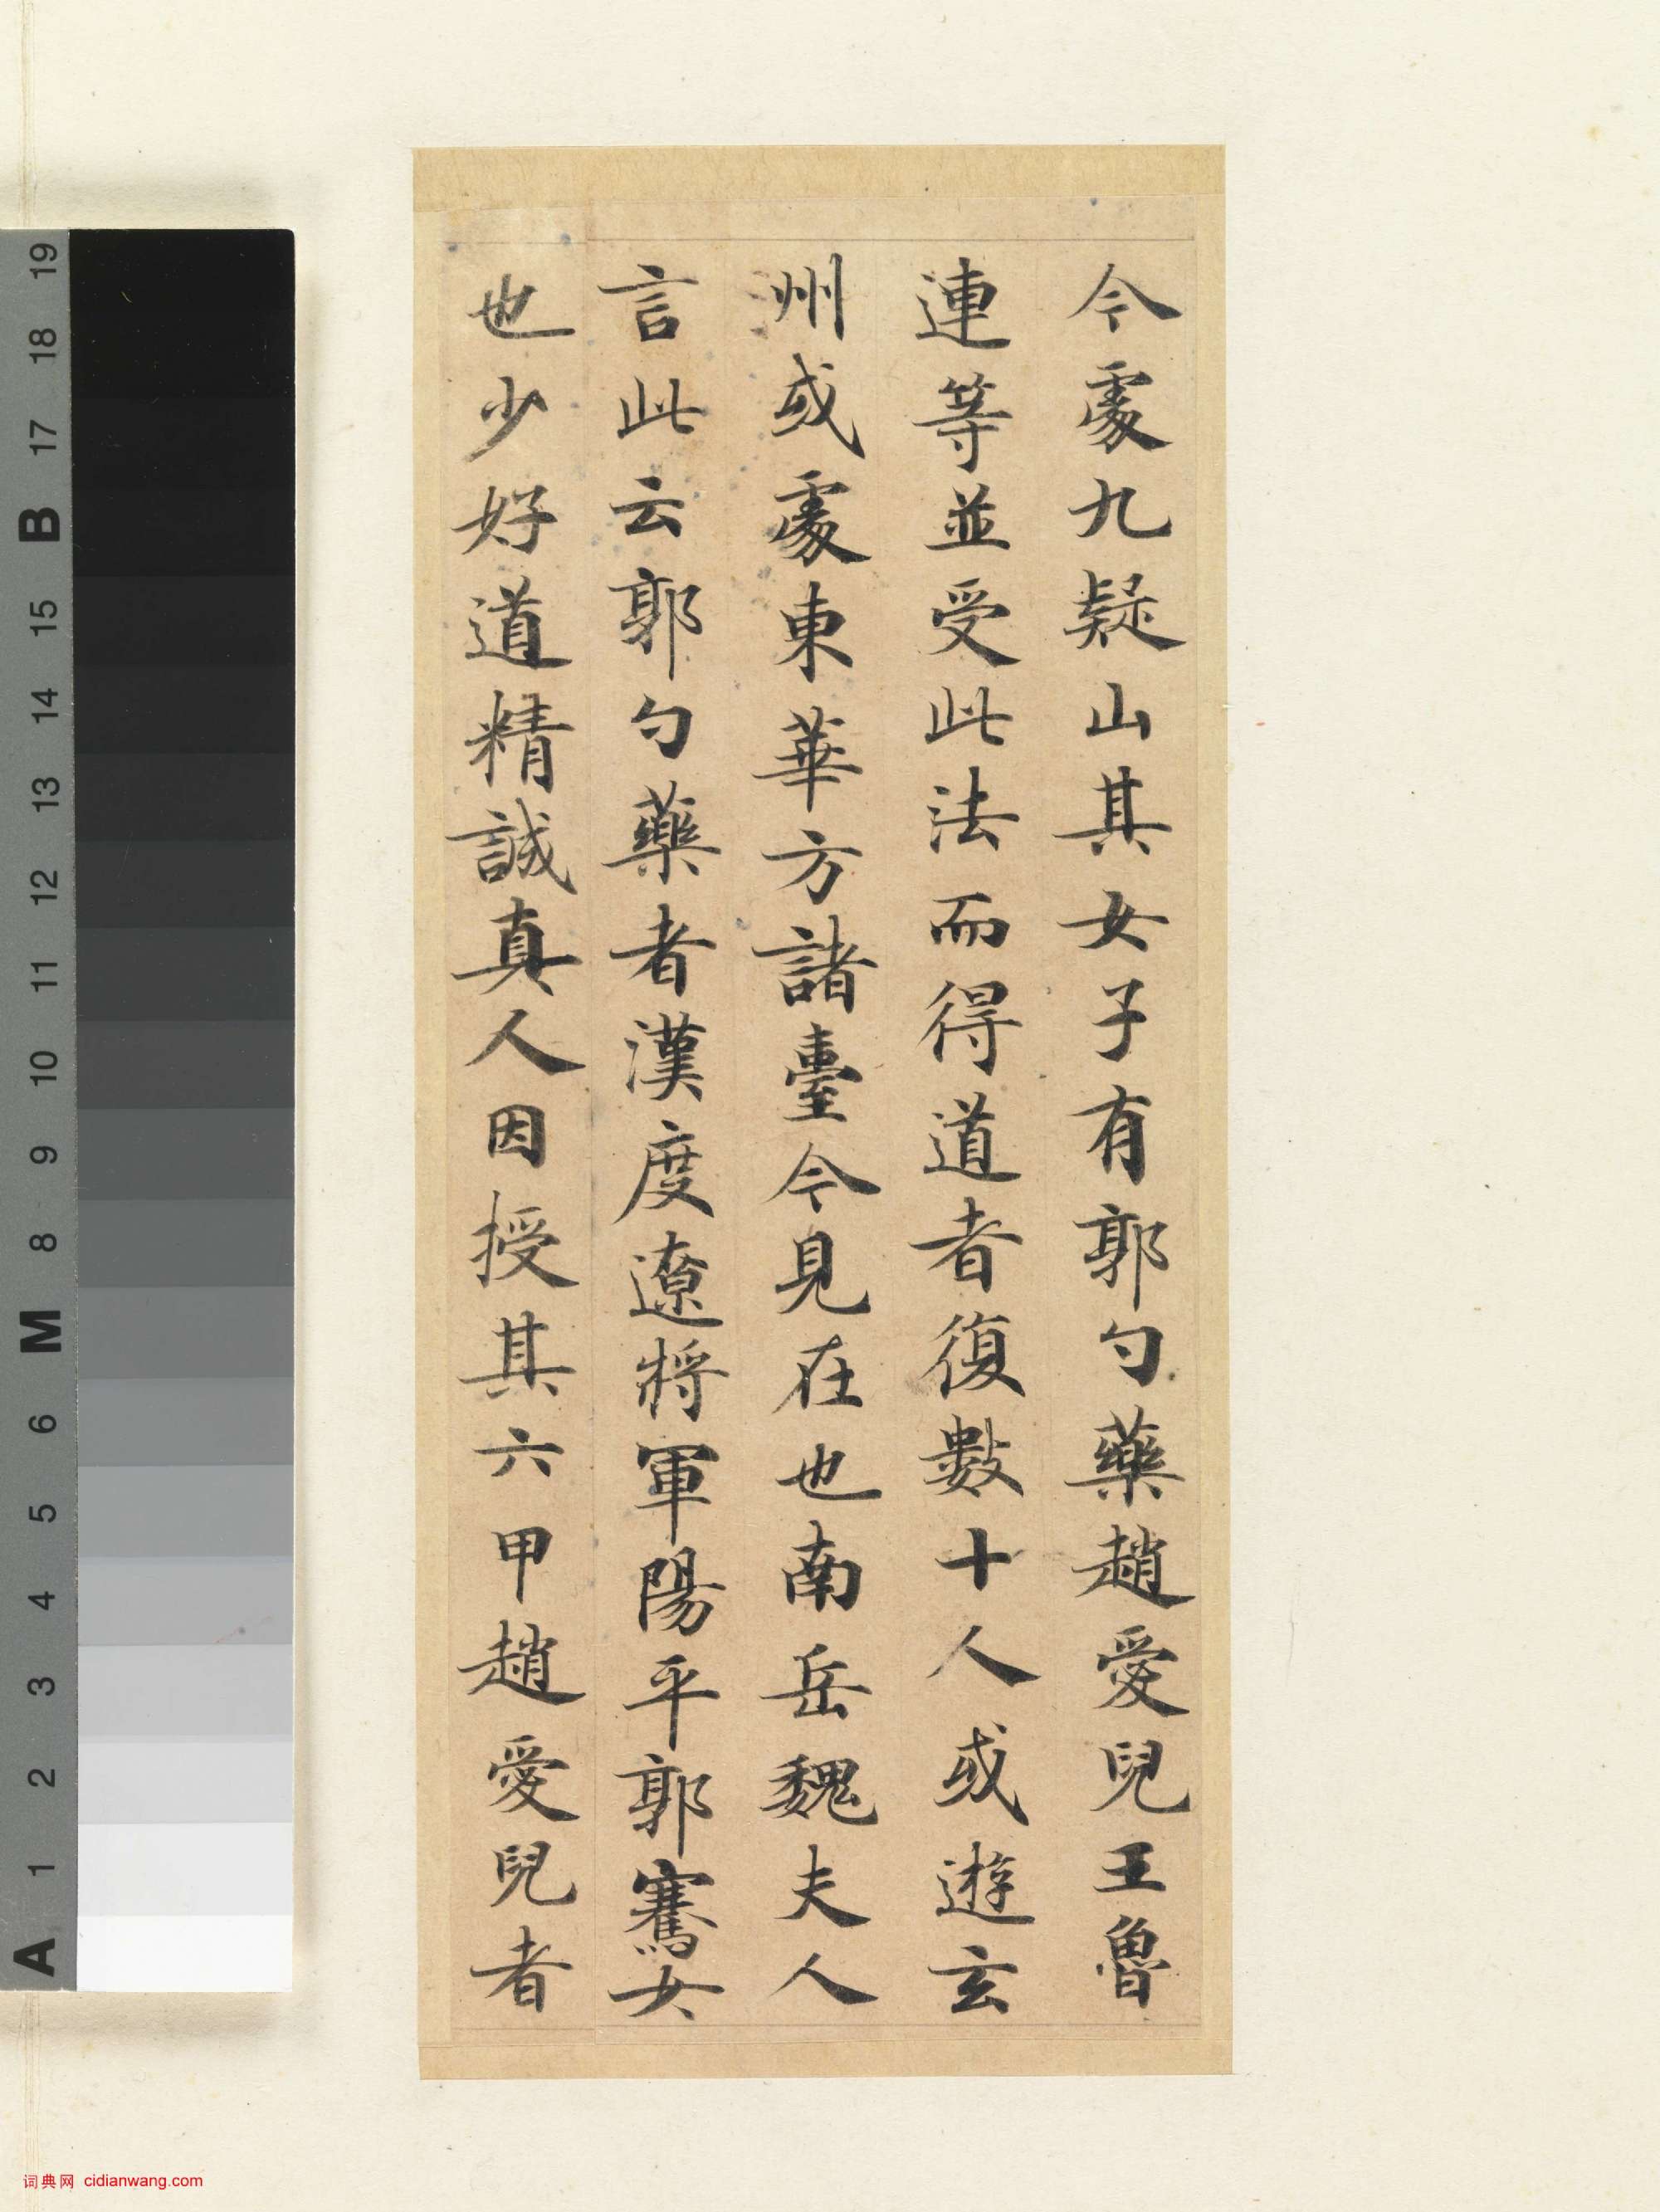 今處九疑山其女子有郭勺藥趙愛兒王魯
連等並受此法而得道者復數十人或遊玄
州或處東華方諸臺今見在也南岳魏夫人
言此云郭勺藥者漢度遼將軍陽平郭騫女
也少好道精誠真人因授其六甲趙愛兒者
19
18
17
B
15
14
13
12
11
10
9
8
M
6
5
4
3
2
1
A
词典网 cidianwang.com